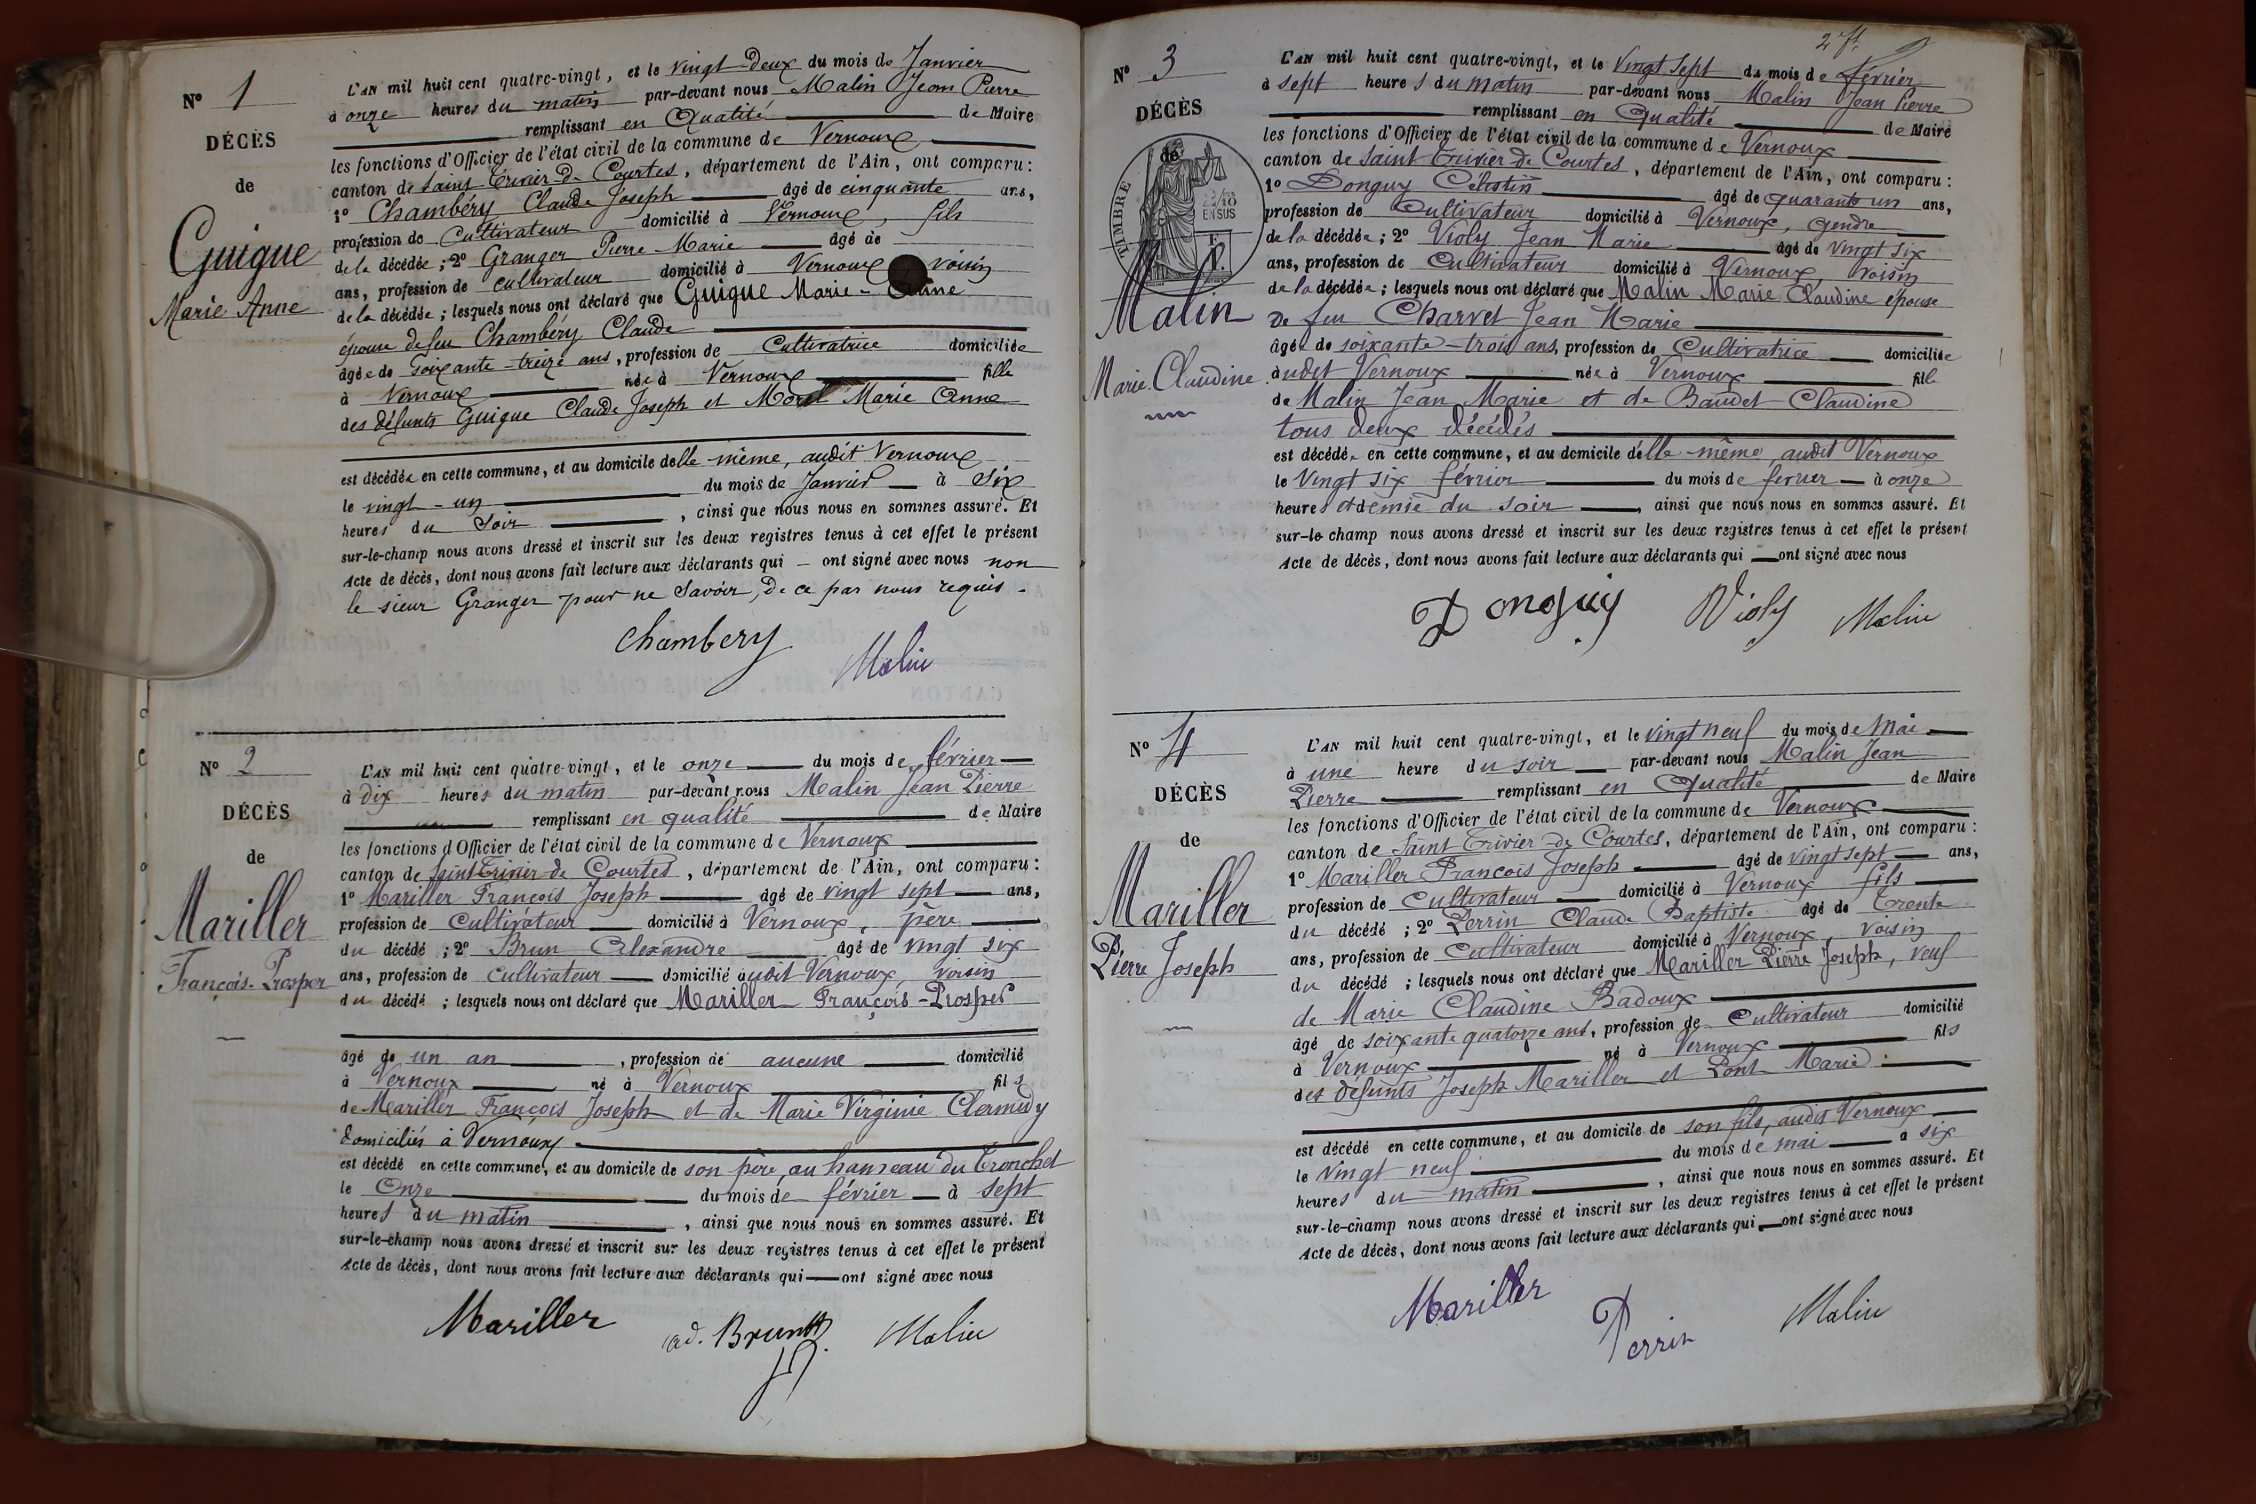 N° 1
DÉCÈS
de
Guigue
Marie Anne
L'AN mil huit cent quatre-vingt, et le vingt-deux du mois de Janvier
à onze heures du matin par-devant nous Malin Jean Pierre
remplissant en Qualité de Maire
les fonctions d'Officier de l'état civil de la commune de Vernoux
canton de Saint Trivier de Courtes, département de l'Ain, ont comparu :
1° Chambéry Claude Joseph âgé de cinquante ans,
profession de Cultivateur domicilié à Vernoux, fils
de la décédée ; 2° Granger Pierre Marie âgé de
ans, profession de cultivateur domicilié à Vernoux voisin
de la décédée ; lesquels nous ont déclaré que Guigue Marie-Anne
épouse de feu Chambéry Claude
âgée de soixante-treize ans, profession de Cultivatrice domiciliée
à Vernoux née à Vernoux fille
des défunts Guigue Claude Joseph et Morel Marie Anne
est décédée en cette commune, et au domicile d'elle-même, audit Vernoux
le vingt-un du mois de Janvier à six
heures du soir, ainsi que nous nous en sommes assuré. Et
sur-le-champ nous avons dressé et inscrit sur les deux registres tenus à cet effet le présent
Acte de décès, dont nous avons fait lecture aux déclarants qui — ont signé avec nous non
le sieur Granger pour ne savoir, de ce par nous requis.
Chambery
Malin
N° 2
DÉCÈS
de
Mariller
François-Prosper
L'AN mil huit cent quatre-vingt, et le onze du mois de février
à dix heures du matin par-devant nous Malin Jean Pierre
remplissant en qualité de Maire
les fonctions d'Officier de l'état civil de la commune de Vernoux
canton de Saint Trivier de Courtes, département de l'Ain, ont comparu :
1° Mariller François Joseph âgé de vingt sept ans,
profession de Cultivateur domicilié à Vernoux, père
du décédé ; 2° Brun Alexandre âgé de vingt six
ans, profession de cultivateur domicilié audit Vernoux voisin
du décédé ; lesquels nous ont déclaré que Mariller François-Prosper
âgé de un an, profession de aucune domicilié
à Vernoux né à Vernoux fils
de Mariller François Joseph et de Marie Virginie Clermidy
domiciliés à Vernoux
est décédé en cette commune, et au domicile de son père, au hameau du Tronchet
le Onze du mois de février à sept
heures du matin, ainsi que nous nous en sommes assuré. Et
sur-le-champ nous avons dressé et inscrit sur les deux registres tenus à cet effet le présent
Acte de décès, dont nous avons fait lecture aux déclarants qui — ont signé avec nous
Mariller
ad. Brun
Malin
N° 3
DÉCÈS
de
TIMBRE
2/10
EN SUS
Malin
Marie Claudine
L'AN mil huit cent quatre-vingt, et le vingt sept du mois de février
à sept heures du matin par-devant nous Malin Jean Pierre
remplissant en Qualité de Maire
les fonctions d'Officier de l'état civil de la commune de Vernoux
canton de Saint Trivier de Courtes, département de l'Ain, ont comparu :
1° Donguy Célestin âgé de quarante un ans,
profession de Cultivateur domicilié à Vernoux, gendre
de la décédée ; 2° Violy Jean Marie âgé de vingt six
ans, profession de Cultivateur domicilié à Vernoux, voisin
de la décédée ; lesquels nous ont déclaré que Malin Marie Claudine épouse
De feu Charvet Jean Marie
âgée de soixante-trois ans, profession de Cultivatrice domiciliée
audit Vernoux née à Vernoux fille
de Malin Jean Marie et de Baudet Claudine
tous deux décédés
est décédée en cette commune, et au domicile d'elle-même, audit Vernoux
le vingt six février du mois de fevrier à onze
heures et demie du soir, ainsi que nous nous en sommes assuré. Et
sur-le-champ nous avons dressé et inscrit sur les deux registres tenus à cet effet le présent
Acte de décès, dont nous avons fait lecture aux déclarants qui — ont signé avec nous
Donguy
Violy
Malin
N° 4
DÉCÈS
de
Mariller
Pierre Joseph
L'AN mil huit cent quatre-vingt, et le vingt neuf du mois de Mai
à une heure du soir par-devant nous Malin Jean
Pierre remplissant en Qualité de Maire
les fonctions d'Officier de l'état civil de la commune de Vernoux
canton de Saint Trivier de Courtes, département de l'Ain, ont comparu :
1° Mariller François Joseph âgé de vingt sept ans,
profession de Cultivateur domicilié à Vernoux fils
du décédé ; 2° Perrin Claude Baptiste âgé de Trente
ans, profession de Cultivateur domicilié à Vernoux, voisin
du décédé ; lesquels nous ont déclaré que Mariller Pierre Joseph, veuf
de Marie Claudine Badoux
âgé de soixante quatorze ans, profession de Cultivateur domicilié
à Vernoux né à Vernoux fils
des défunts Joseph Mariller et Pont Marie
est décédé en cette commune, et au domicile de son fils, audit Vernoux
le vingt neuf du mois de mai à six
heures du matin, ainsi que nous nous en sommes assuré. Et
sur-le-champ nous avons dressé et inscrit sur les deux registres tenus à cet effet le présent
Acte de décès, dont nous avons fait lecture aux déclarants qui — ont signé avec nous
Mariller
Perrin
Malin